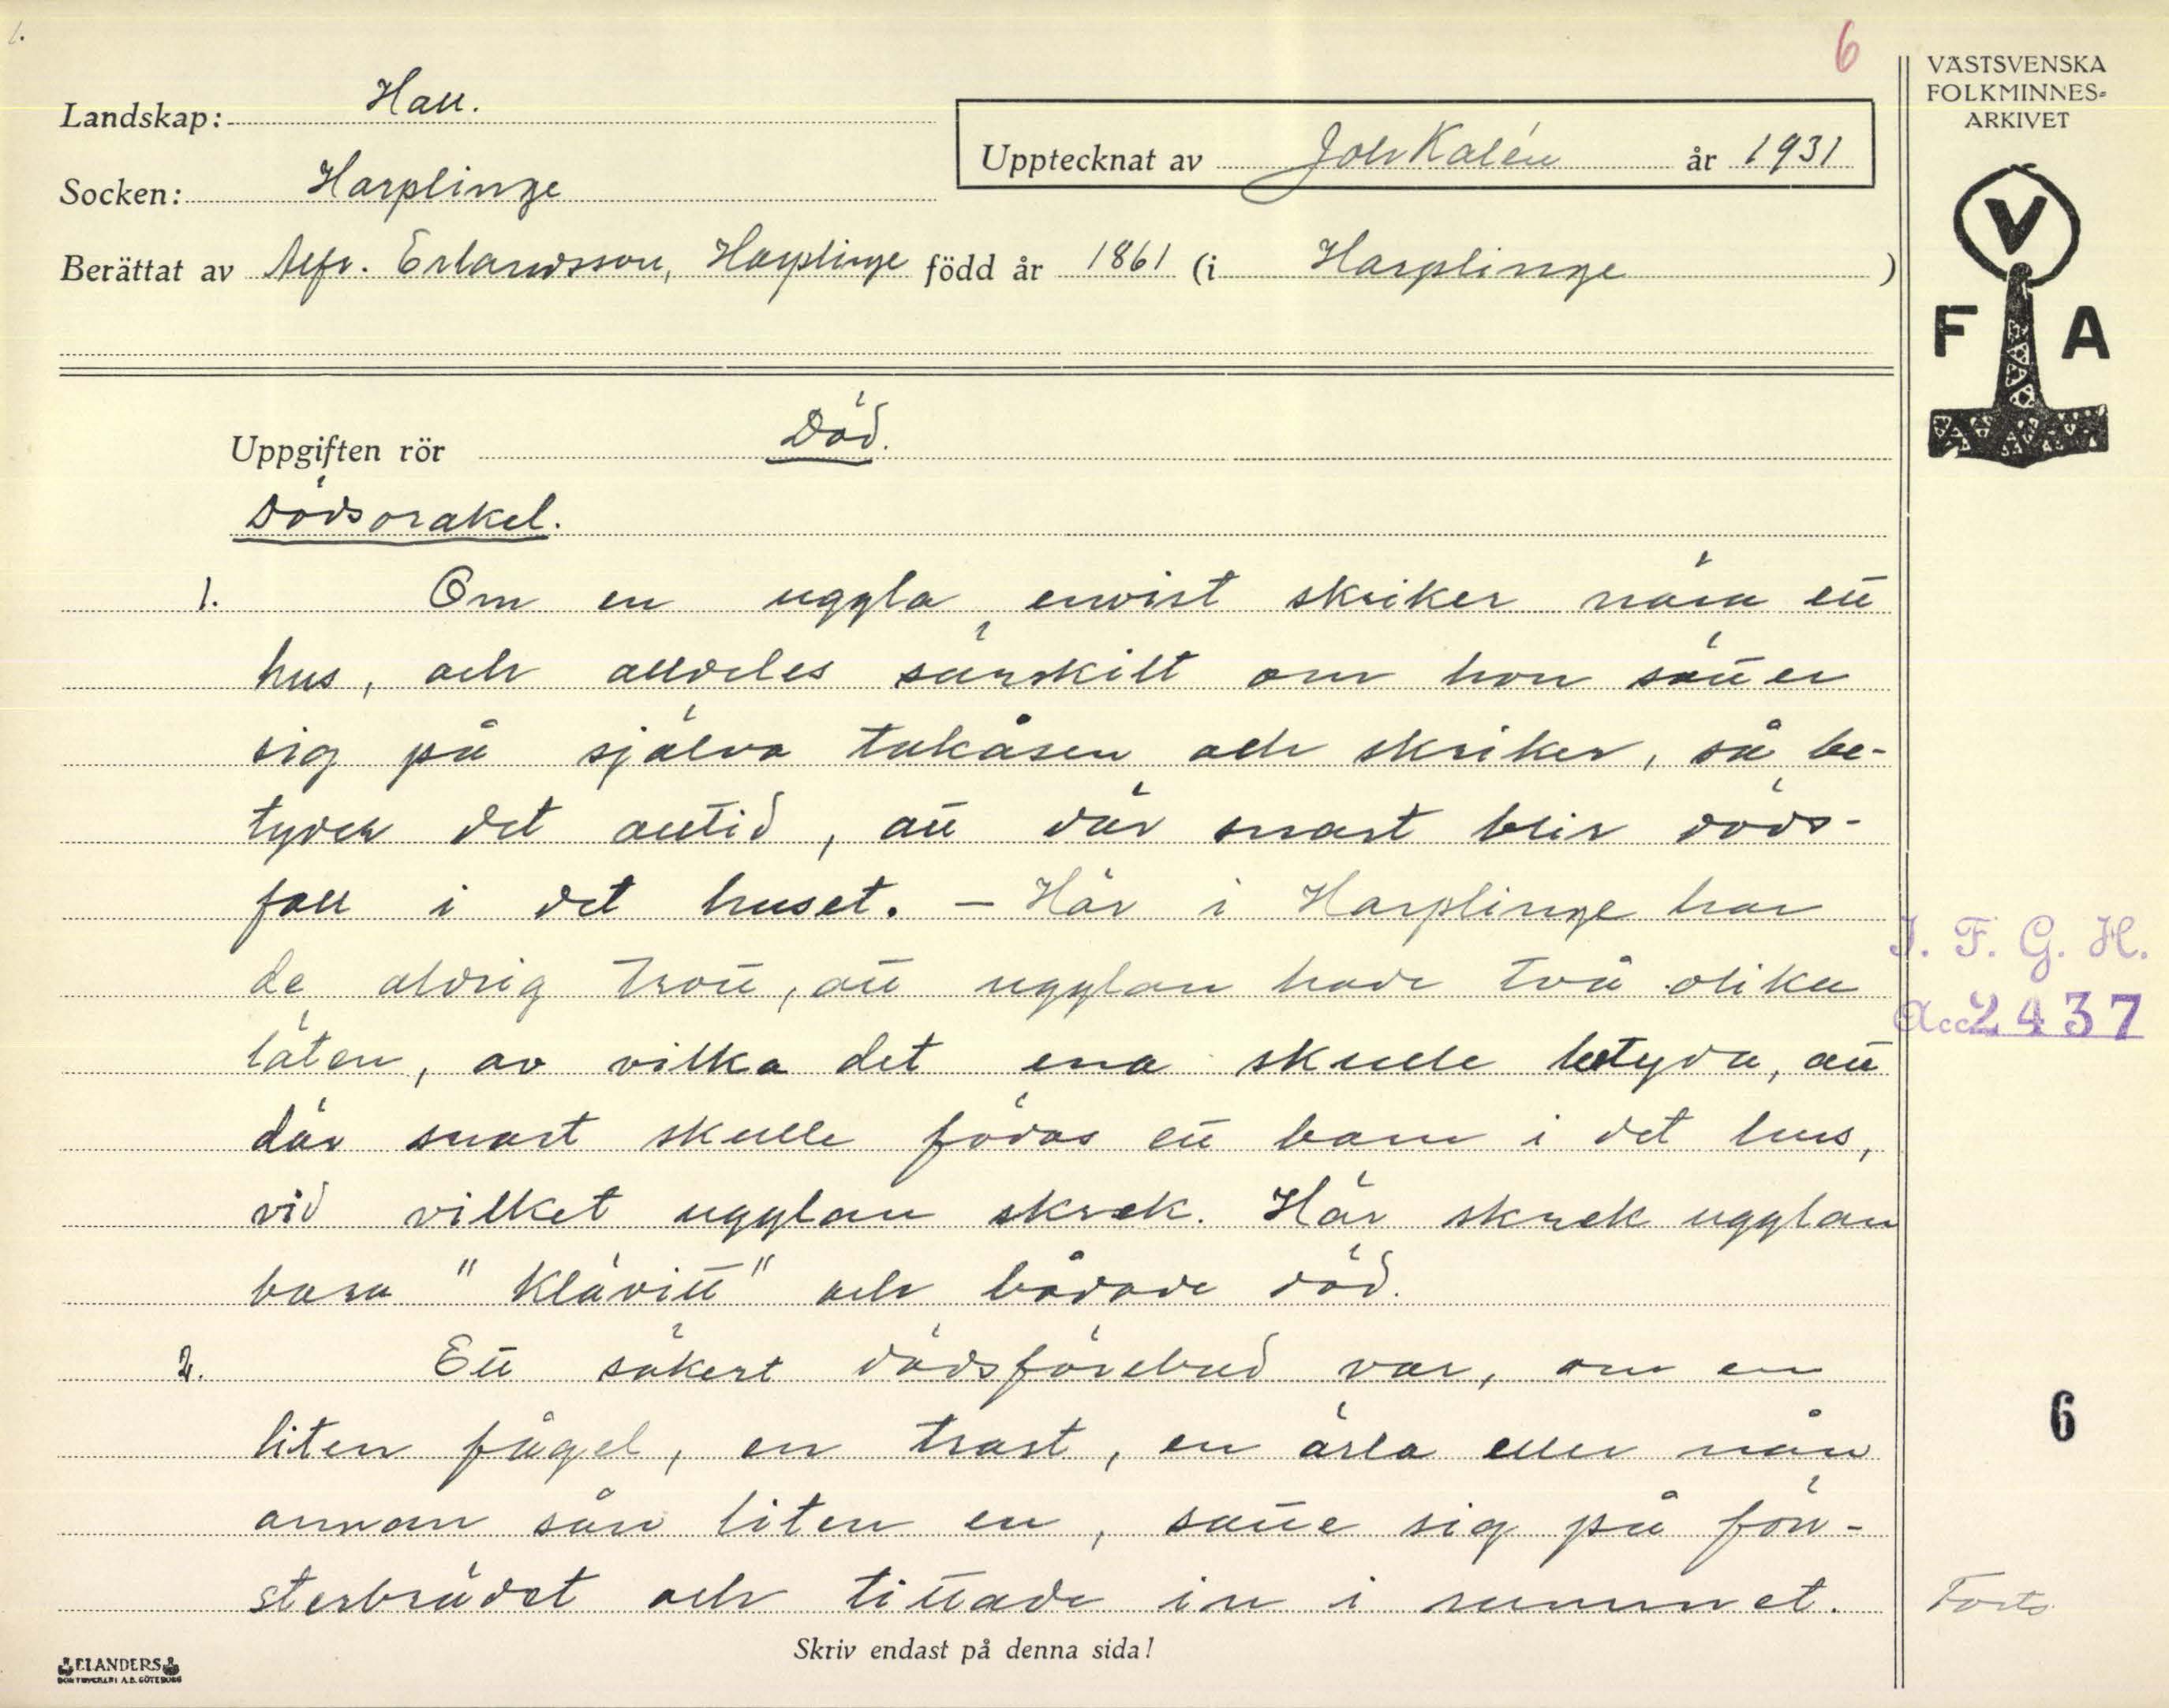 6
VÄSTSVENSKA
FOLKMINNES-
ARKIVET
Landskap: Hall.
Upptecknat av Joh Kalén år 1931
Socken: Harplinge
Berättat av Alfr. Erlandsson, Harplinge född år 1861 (i Harplinge)
V
F A
Uppgiften rör Död.
Dödsorakel.
1. Om en uggla envist skriker nära ett
hus, och alldeles särskilt om hon sätter
sig på själva takåsen och skriker, så be-
tyder det alltid, att där snart blir döds-
fall i det huset. – Här i Harplinge har
de aldrig trott, att ugglan hade två olika
läten, av vilka det ena skulle betyda, att
där snart skulle födas ett barn i det hus,
vid vilket ugglan skrek. Här skrek ugglan
bara "klävitt" och bådade död.
2. Ett säkert dödsförebud var, om en
liten fågel, en trast, en ärla eller nån
annan sån liten en, satte sig på fön-
sterbrädet och tittade in i rummet.
I. F. G. H.
Acc 2437
6
Forts.
Skriv endast på denna sida!
ELANDERS
BOKTRYCKERI A.B. GÖTEBORG